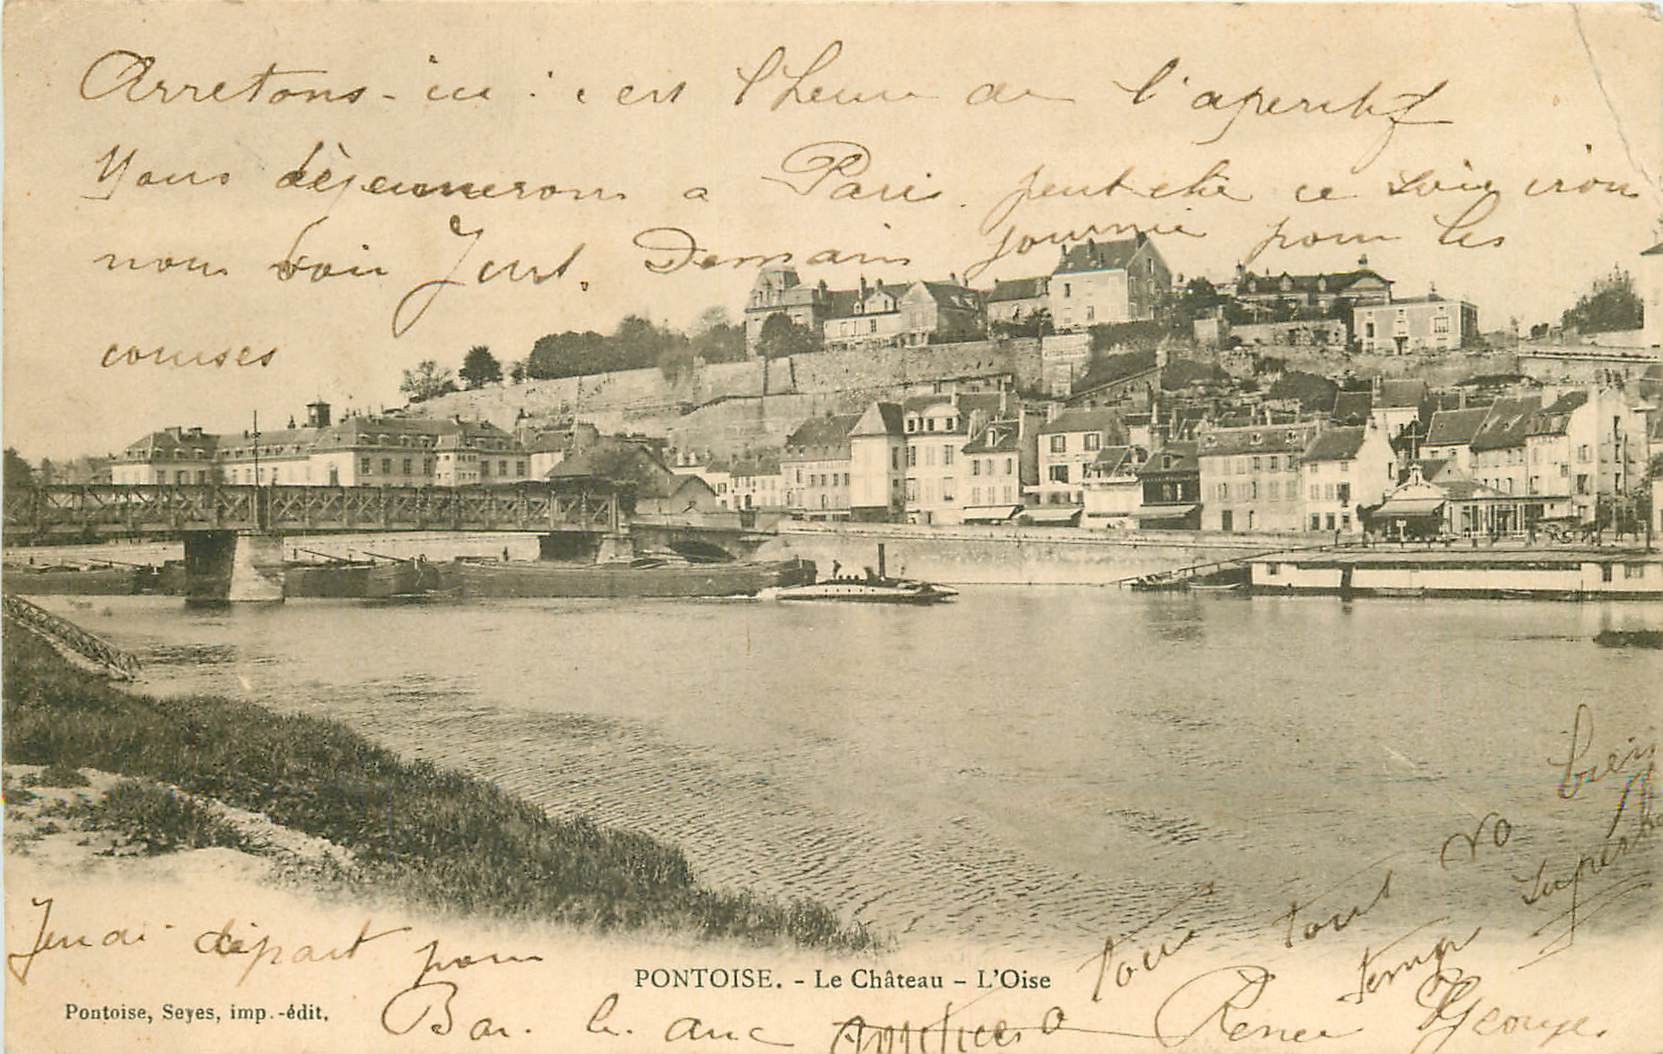 Arretons-ici : c'est l'heure de l'aperitif
Nous déjeunerons a Paris. peut etre ce soir irons
nous voir Just. Demain journée pour les
courses
Jeudi départ pour
Bar. le. duc Amitiés a
tous tout va bien
temps superbe
Renée Georges
PONTOISE. - Le Château - L'Oise
Pontoise, Seyes, imp.-édit.